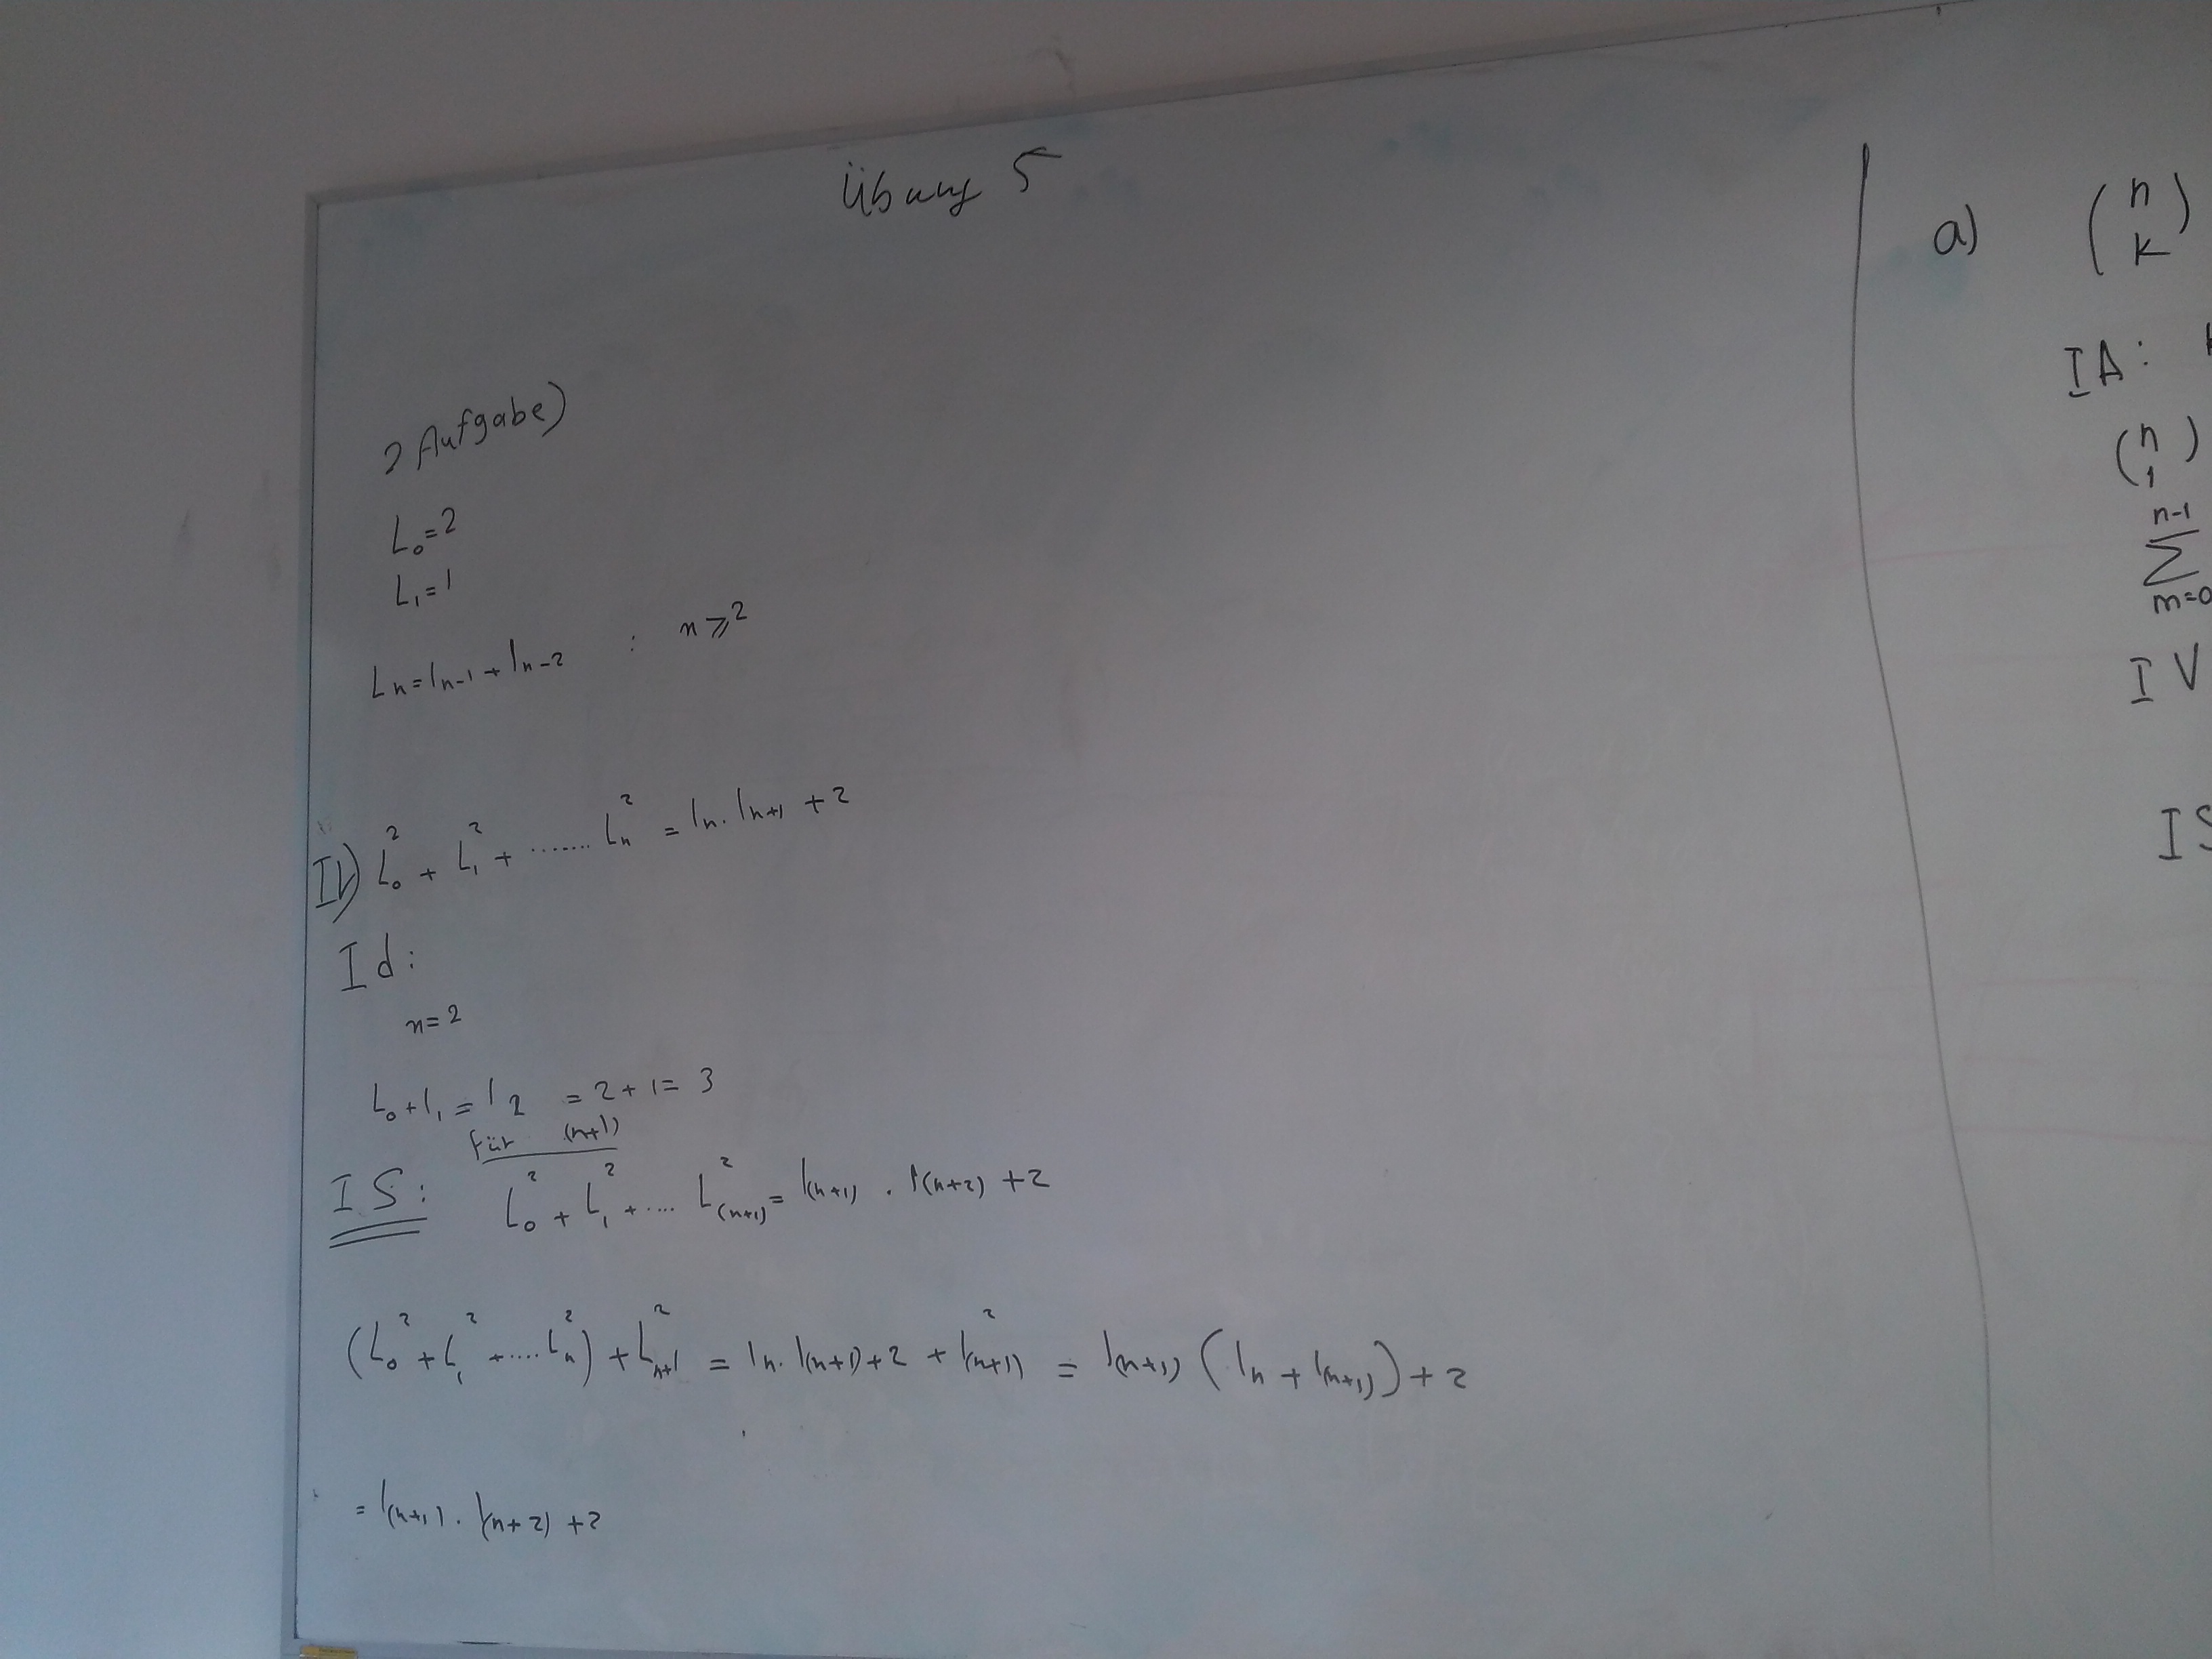 Übung 5
2 Aufgabe)
L₀=2
L₁=1
Lₙ=lₙ₋₁+lₙ₋₂ : n⩾2
IV) L₀² + L₁² + ....... Lₙ² = lₙ·lₙ₊₁ +2
Id:
n=2
L₀+l₁=l₂ =2+1=3
für (n+1)
IS: L₀² + L₁² +.... L₍ₙ₊₁₎² = l₍ₙ₊₁₎ · l₍ₙ₊₂₎ +2
(L₀²+L₁²+....Lₙ²)+Lₙ₊₁² = lₙ·l₍ₙ₊₁₎+2 + l₍ₙ₊₁₎² = l₍ₙ₊₁₎(lₙ+l₍ₙ₊₁₎)+2
=l₍ₙ₊₁₎·l₍ₙ₊₂₎+2
a) (n k)
IA:
(n 1)
n-1
∑
m=0
IV
IS